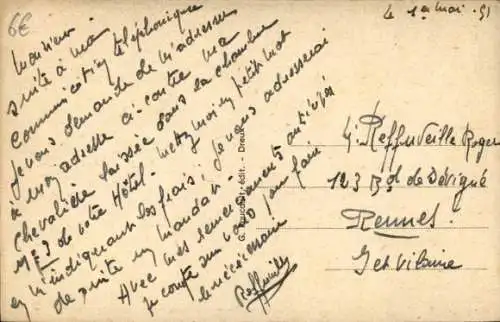 6€
le 1er mai. 51
Monsieur
suite à ma
communication téléphonique
je vous demande de m'adresser
à mon adresse ci-contre ma
chevalière laissée dans la chambre
n° 3 de votre Hôtel. Mettez moi un petit mot
en m'indiquant les frais; je vous adresserai
de suite un mandat.
Avec mes remerciements anticipés
je compte sur vous pour faire
le nécessaire!
Reffuveille
G. Foucault, édit. - Dreux
M. Reffuveille Roger
123 Bd de Sévigné
Rennes.
Ile et Vilaine